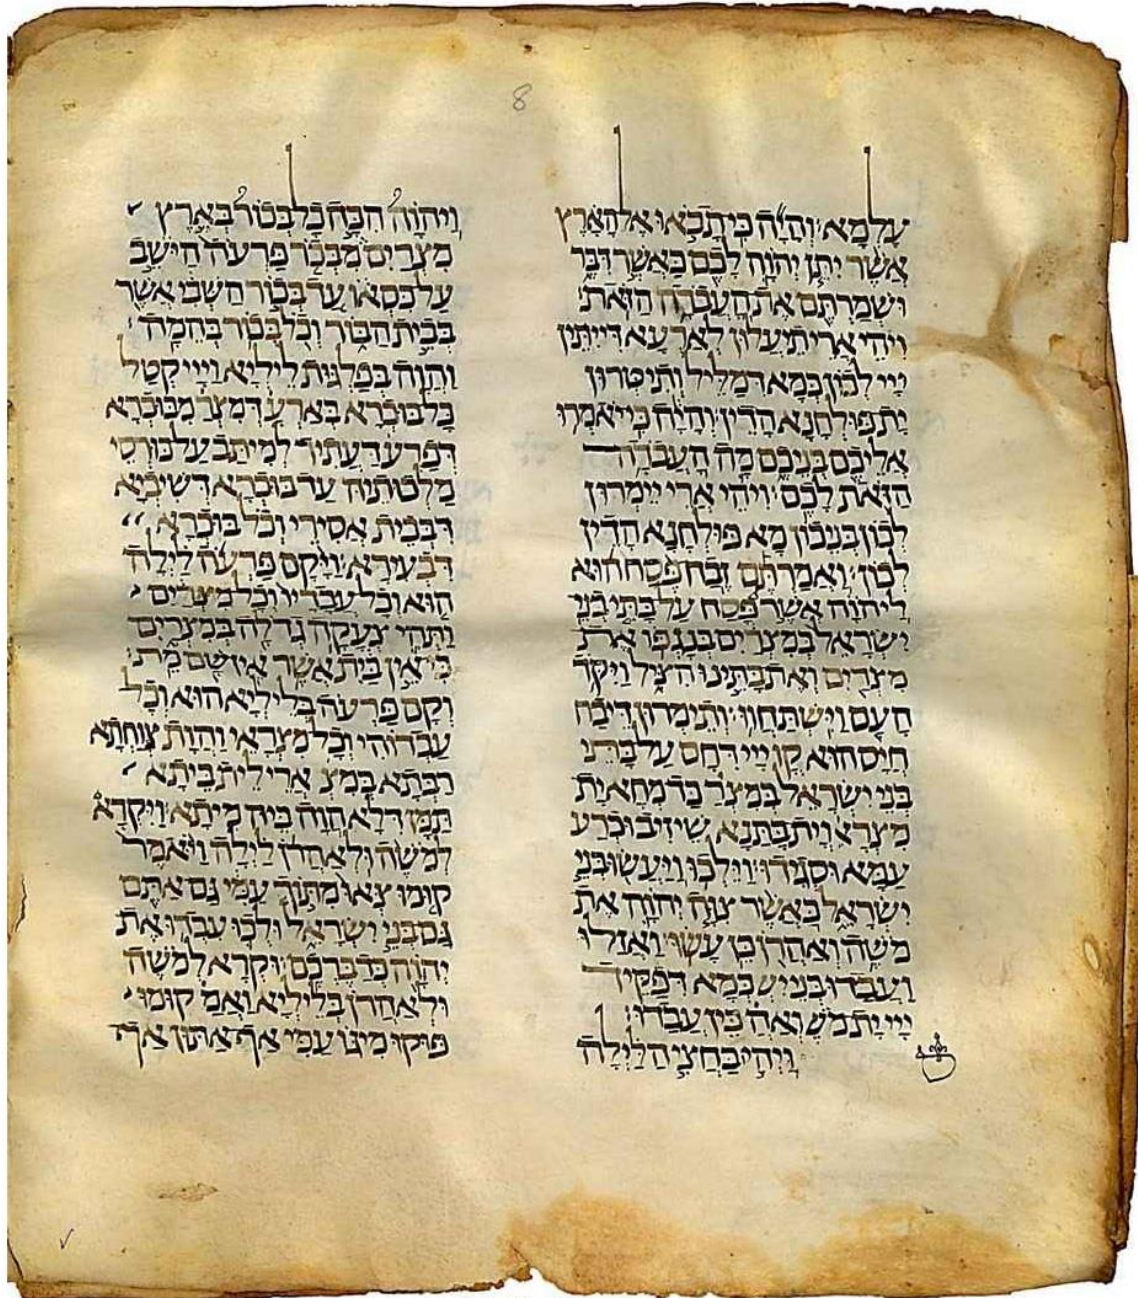 8
עלמא והיה כי תבאו אל הארץ
אשר יתן יהוה לכם כאשר דבר
ושמרתם את העבדה הזאת
ויהי ארי תיעלון לארעא דייתין
ייי לכון כמא דמליל ותיטרון
ית פולחנא הדין והיה כי יאמרו
אליכם בניכם מה העבדה
הזאת לכם ויהי ארי יימרון
לכון בניכון מא פולחנא הדין
לכון ואמרתם זבח פסח הוא
ליהוה אשר פסח על בתי בני
ישראל במצרים בנגפו את
מצרים ואת בתינו הציל ויקד
העם וישתחוו ותימרון דיבח
חייס הוא קדם ייי דיחס על בתי
בני ישראל במצר כד מחא ית
מצראי וית בתנא שיזיב וכרע
עמא וסגידו וילכו ויעשו בני
ישראל כאשר צוה יהוה את
משה ואהרן כן עשו ואזלו
ועבדו בני יש כמא דפקיד
ייי ית מש ואה כין עבדו
ויהי בחצי הלילה
ויהוה הכה כל בכור בארץ
מצרים מבכר פרעה הישב
על כסאו עד בכור השבי אשר
בבית הבור וכל בכור בהמה
והוה בפלגות ליליא וייי קטל
כל בוכרא בארע דמצר מבוכרא
דפרעה דעתיד למיתב על כורסי
מלכותיה עד בוכרא דשיביא
דבבית אסירי וכל בוכרא
דבעירא ויקם פרעה לילה
הוא וכל עבדיו וכל מצרים
ותהי צעקה גדלה במצרים
כי אין בית אשר אין שם מת
וקם פרעה בליליא הוא וכל
עבדוהי וכל מצראי והות צוחתא
רבתא במצ ארי לית ביתא
תמן דלא הוה ביה מיתא ויקרא
למשה ולאהרן לילה ויאמר
קומו צאו מתוך עמי גם אתם
גם בני ישראל ולכו עבדו את
יהוה כדברכם וקרא למשה
ולאהרן בליליא ואמ קומו
פוקו מיגו עמי אף אתון אף